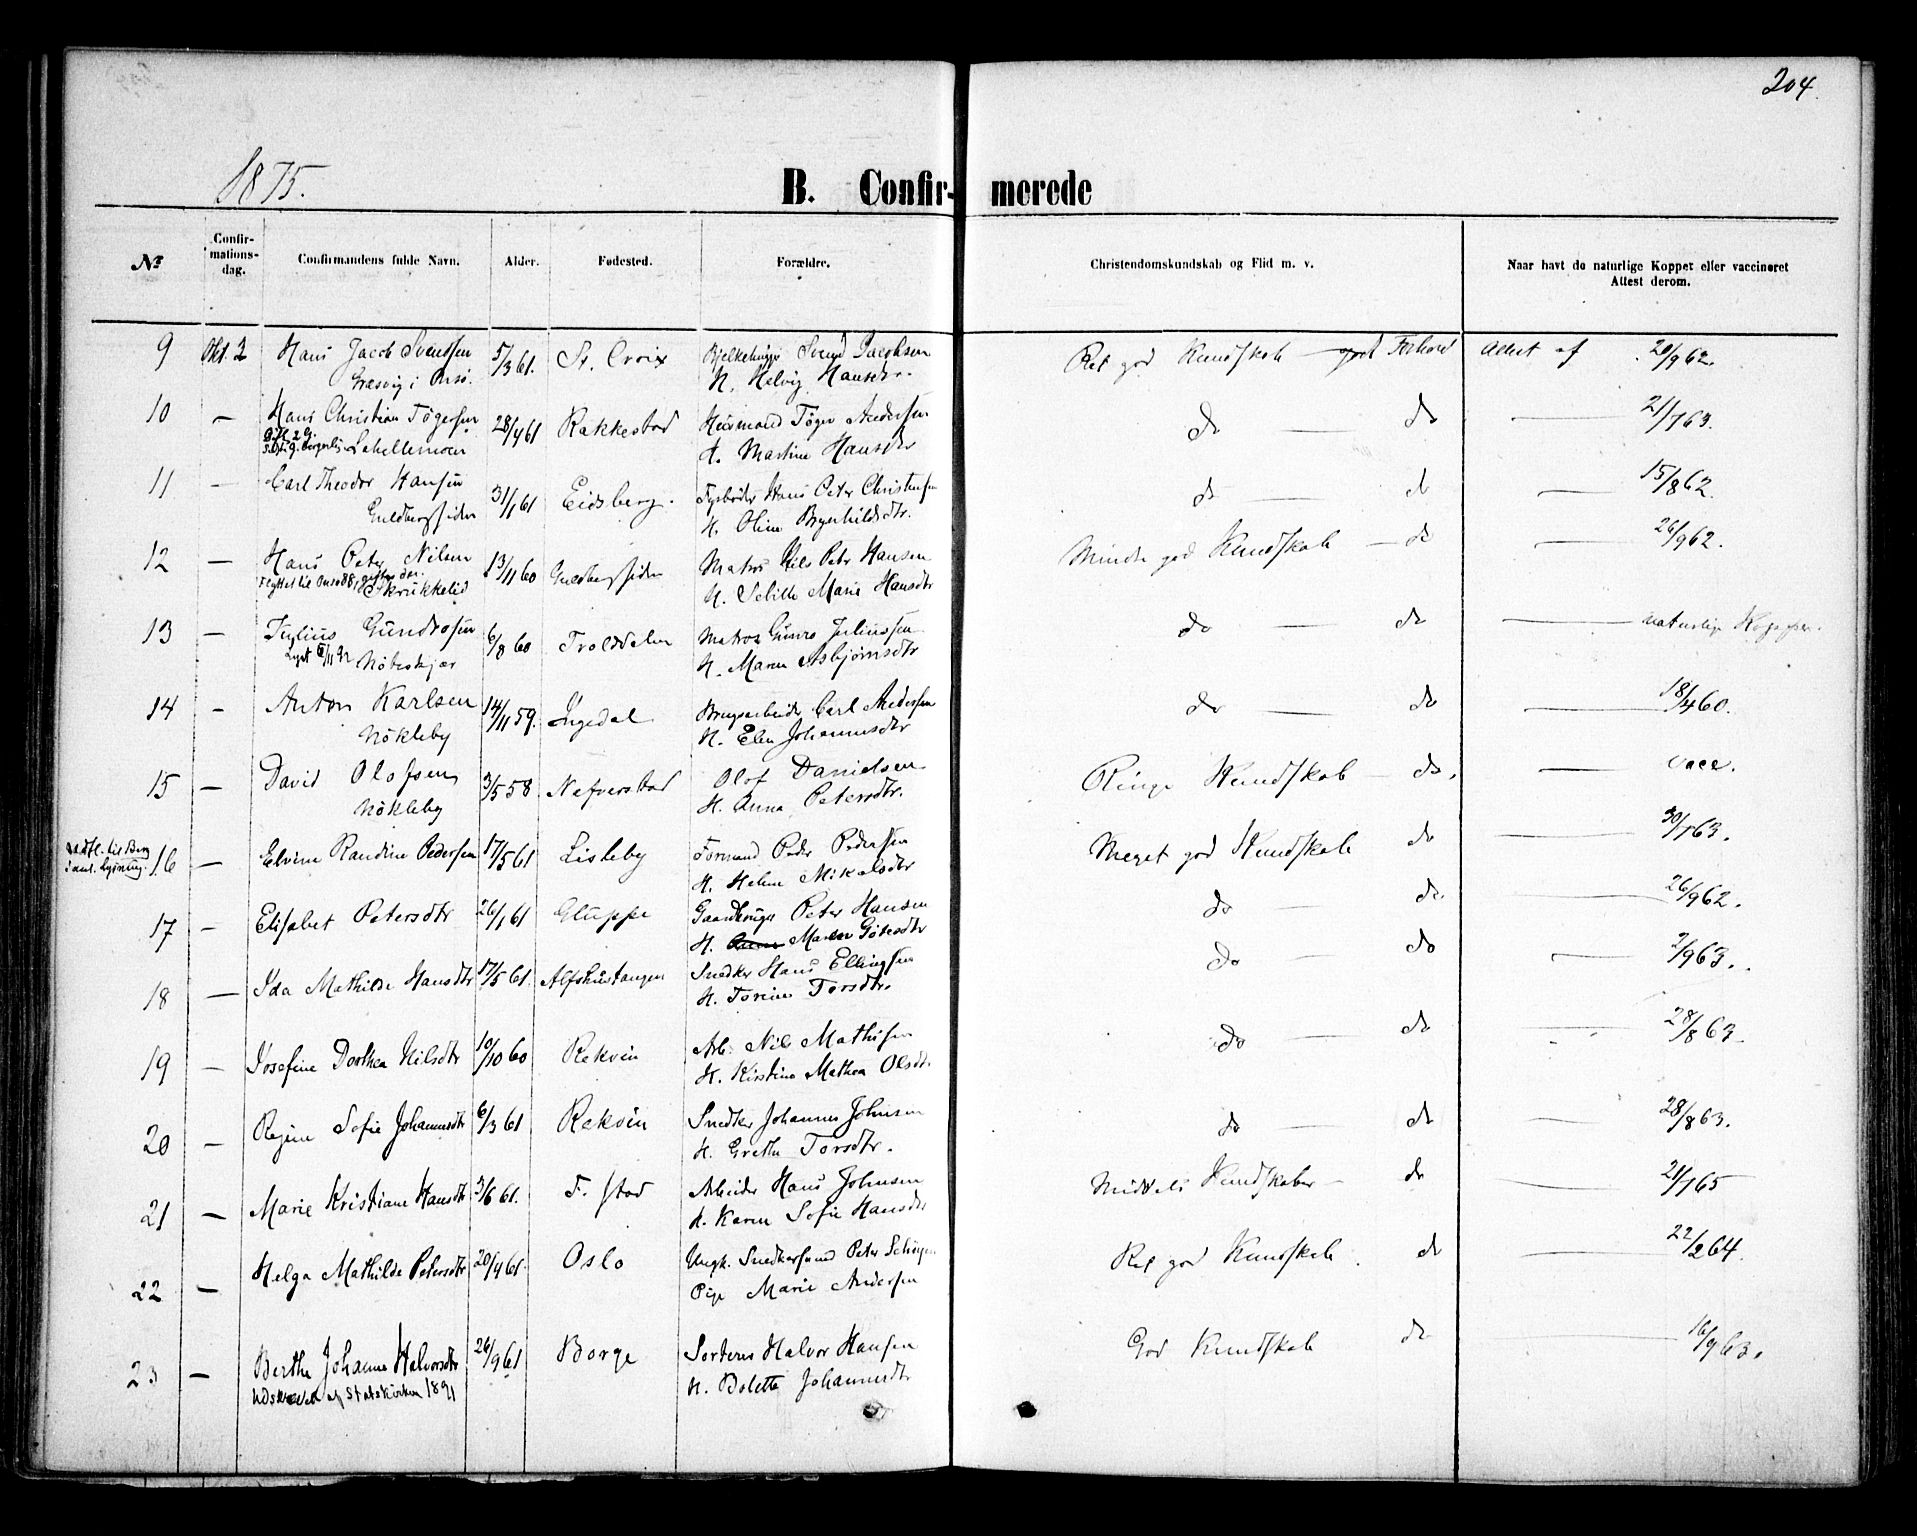 204.
1875.
B. Confir- merede
No
Confir-
mations-
dag.
Confirmandens fulde Navn.
Alder.
Fødested.
Forældre.
Christendomskundskab og Flid m. v.
Naar havt de naturlige Kopper eller vaccineret
Attest derom.
9 Okt. 2 Hans Jacob Svendsen 5/3 61. St. Croix Svend Jacobsen Ret god Kundskab — god Forhold Attest af 20/9 62.
Græsvig i Onsø. H. Helvig Hansdtr.
10 — Hans Christian Tøgersen 28/4 61 Rakkestad Huusmand Tøger Andersen do — do — 21/7 63.
Martine Hansdtr
11 — Carl Theodor Hansen 31/1 61 Eidsberg. Hans Peter Christensen do — do — 15/8 62.
Guldbergsiden H. Oline Brynhildsdtr.
12 — Hans Peter Nilsen 13/11 60 Guldbergsiden Matros Nils Peter Hansen Mindre god Kundskab — do — 26/9 62.
Krukkelid H. Marie Hansdtr
13 — Julius Gundrosen 6/8 60 Trolddalen Matros Gunro Juliussen do — do — naturlige Kopper.
Nøteskjær H. Maren Asbjørnsdtr
14 — Anton Karlsen 14/11 59. Ingedal Brugsarbeider Carl Andersen do — do — 18/4 60.
Nökleby H. Elen Johannesdtr
15 — David Olofsen 3/5 58 Nefverstad Olof Danielsen Ringe Kundskab — do. — vacc.
Nökleby H. Anna Petersdtr.
16 — Elvine Randine Pedersen 17/5 61 Lisleby Formand Peder Pedersen Meget god Kundskab do — 30/1 63.
H. Helene Mikalsdtr
17 — Elisabet Petersdtr 26/1 61 Gluppe Peter Hansen do — do. — 26/9 62.
H. Maren
18 — Ida Mathilde Hansdtr 17/5 61. Snedker Hans Ellingsen do do — 2/9 63.
H. Torine Torsdtr.
19 — Josefine Dorthea Nilsdtr 10/10 60 Rekvin Arb. Nils Mathisen do — do 28/8 63.
H. Kirstine Mathea Olsdtr.
20 — Regine Sofie Johannesdtr 6/3 61 Rekvin Snedker Johannes Johnsen do — do — 28/8 63.
H. Grethe Torsdtr.
21 — Marie Kristiane Hansdtr 3/6 61. F. stad Arbeider Hans Johnsen Middels Kundskaber — do — 21/7 65
H. Karen Sofie Hansdtr
22 — Helga Mathilde Petersdtr 20/4 61. Oslo Ungk. Snedkersvend Peter Ret god Kundskab. do — 22/2 64.
Pige Marie Andersen
23 — Berthe Johanne Halvorsdtr 26/9 61 Borge Halvor Hansen God Kundskab do — 16/9 63.
Udskrevet af Statskirken 1891 H. Bolette Johannesdtr